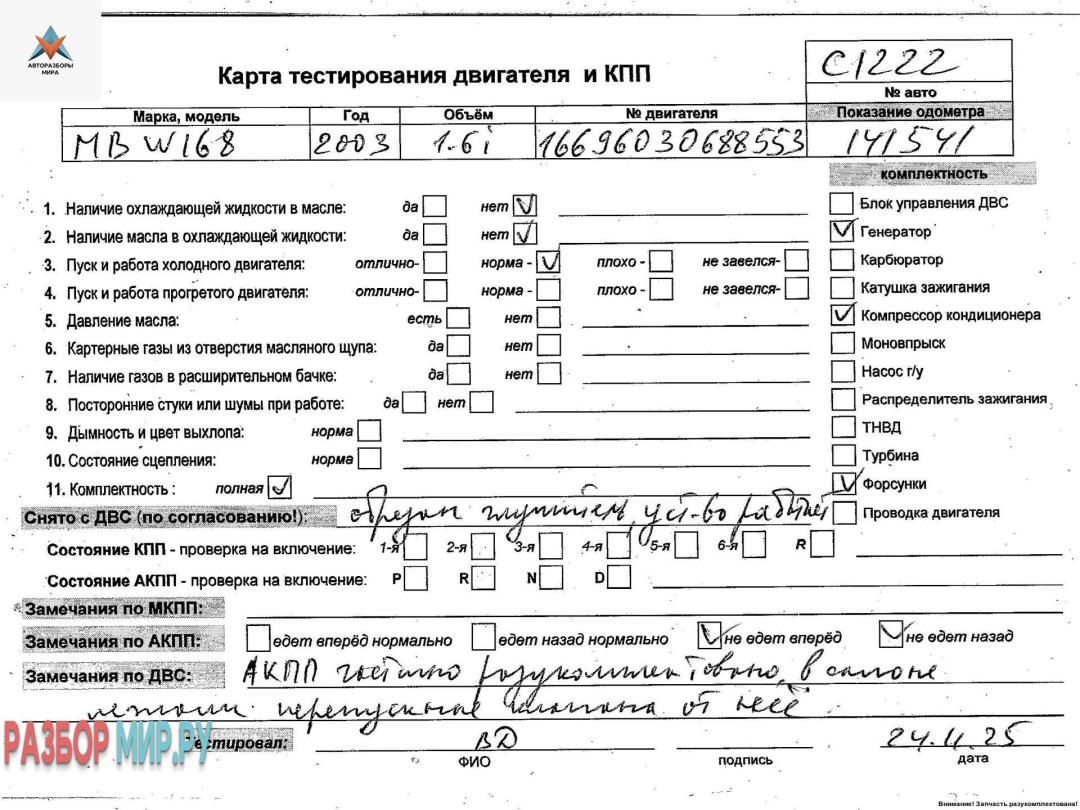 АВТОРАЗБОРЫ
МИРА
Карта тестирования двигателя и КПП
C1222
№ авто
Марка, модель Год Объём № двигателя Показание одометра
MB W168 2003 1.6i 16696030688553 141541
комплектность
1. Наличие охлаждающей жидкости в масле: да нет
Блок управления ДВС
2. Наличие масла в охлаждающей жидкости: да нет
Генератор
3. Пуск и работа холодного двигателя: отлично- норма - плохо - не завелся-
Карбюратор
4. Пуск и работа прогретого двигателя: отлично- норма - плохо - не завелся-
Катушка зажигания
5. Давление масла: есть нет
Компрессор кондиционера
6. Картерные газы из отверстия масляного щупа: да нет
Моновпрыск
7. Наличие газов в расширительном бачке: да нет
Насос г/у
8. Посторонние стуки или шумы при работе: да нет
Распределитель зажигания
9. Дымность и цвет выхлопа: норма
ТНВД
10. Состояние сцепления: норма
Турбина
11. Комплектность : полная
Форсунки
Снято с ДВС (по согласованию!): обрезан глушитель, уст-во работает
Проводка двигателя
Состояние КПП - проверка на включение: 1-я 2-я 3-я 4-я 5-я 6-я R
Состояние АКПП - проверка на включение: P R N D
Замечания по МКПП:
Замечания по АКПП: едет вперёд нормально едет назад нормально не едет вперёд не едет назад
Замечания по ДВС: АКПП частично разукомплектовано, в салоне
лежали перепускные клапана от неё
РАЗБОРМИР.РУ
Тестировал: ВД 24.4.25
ФИО подпись дата
Внимание! Запчасть разукомплектована!